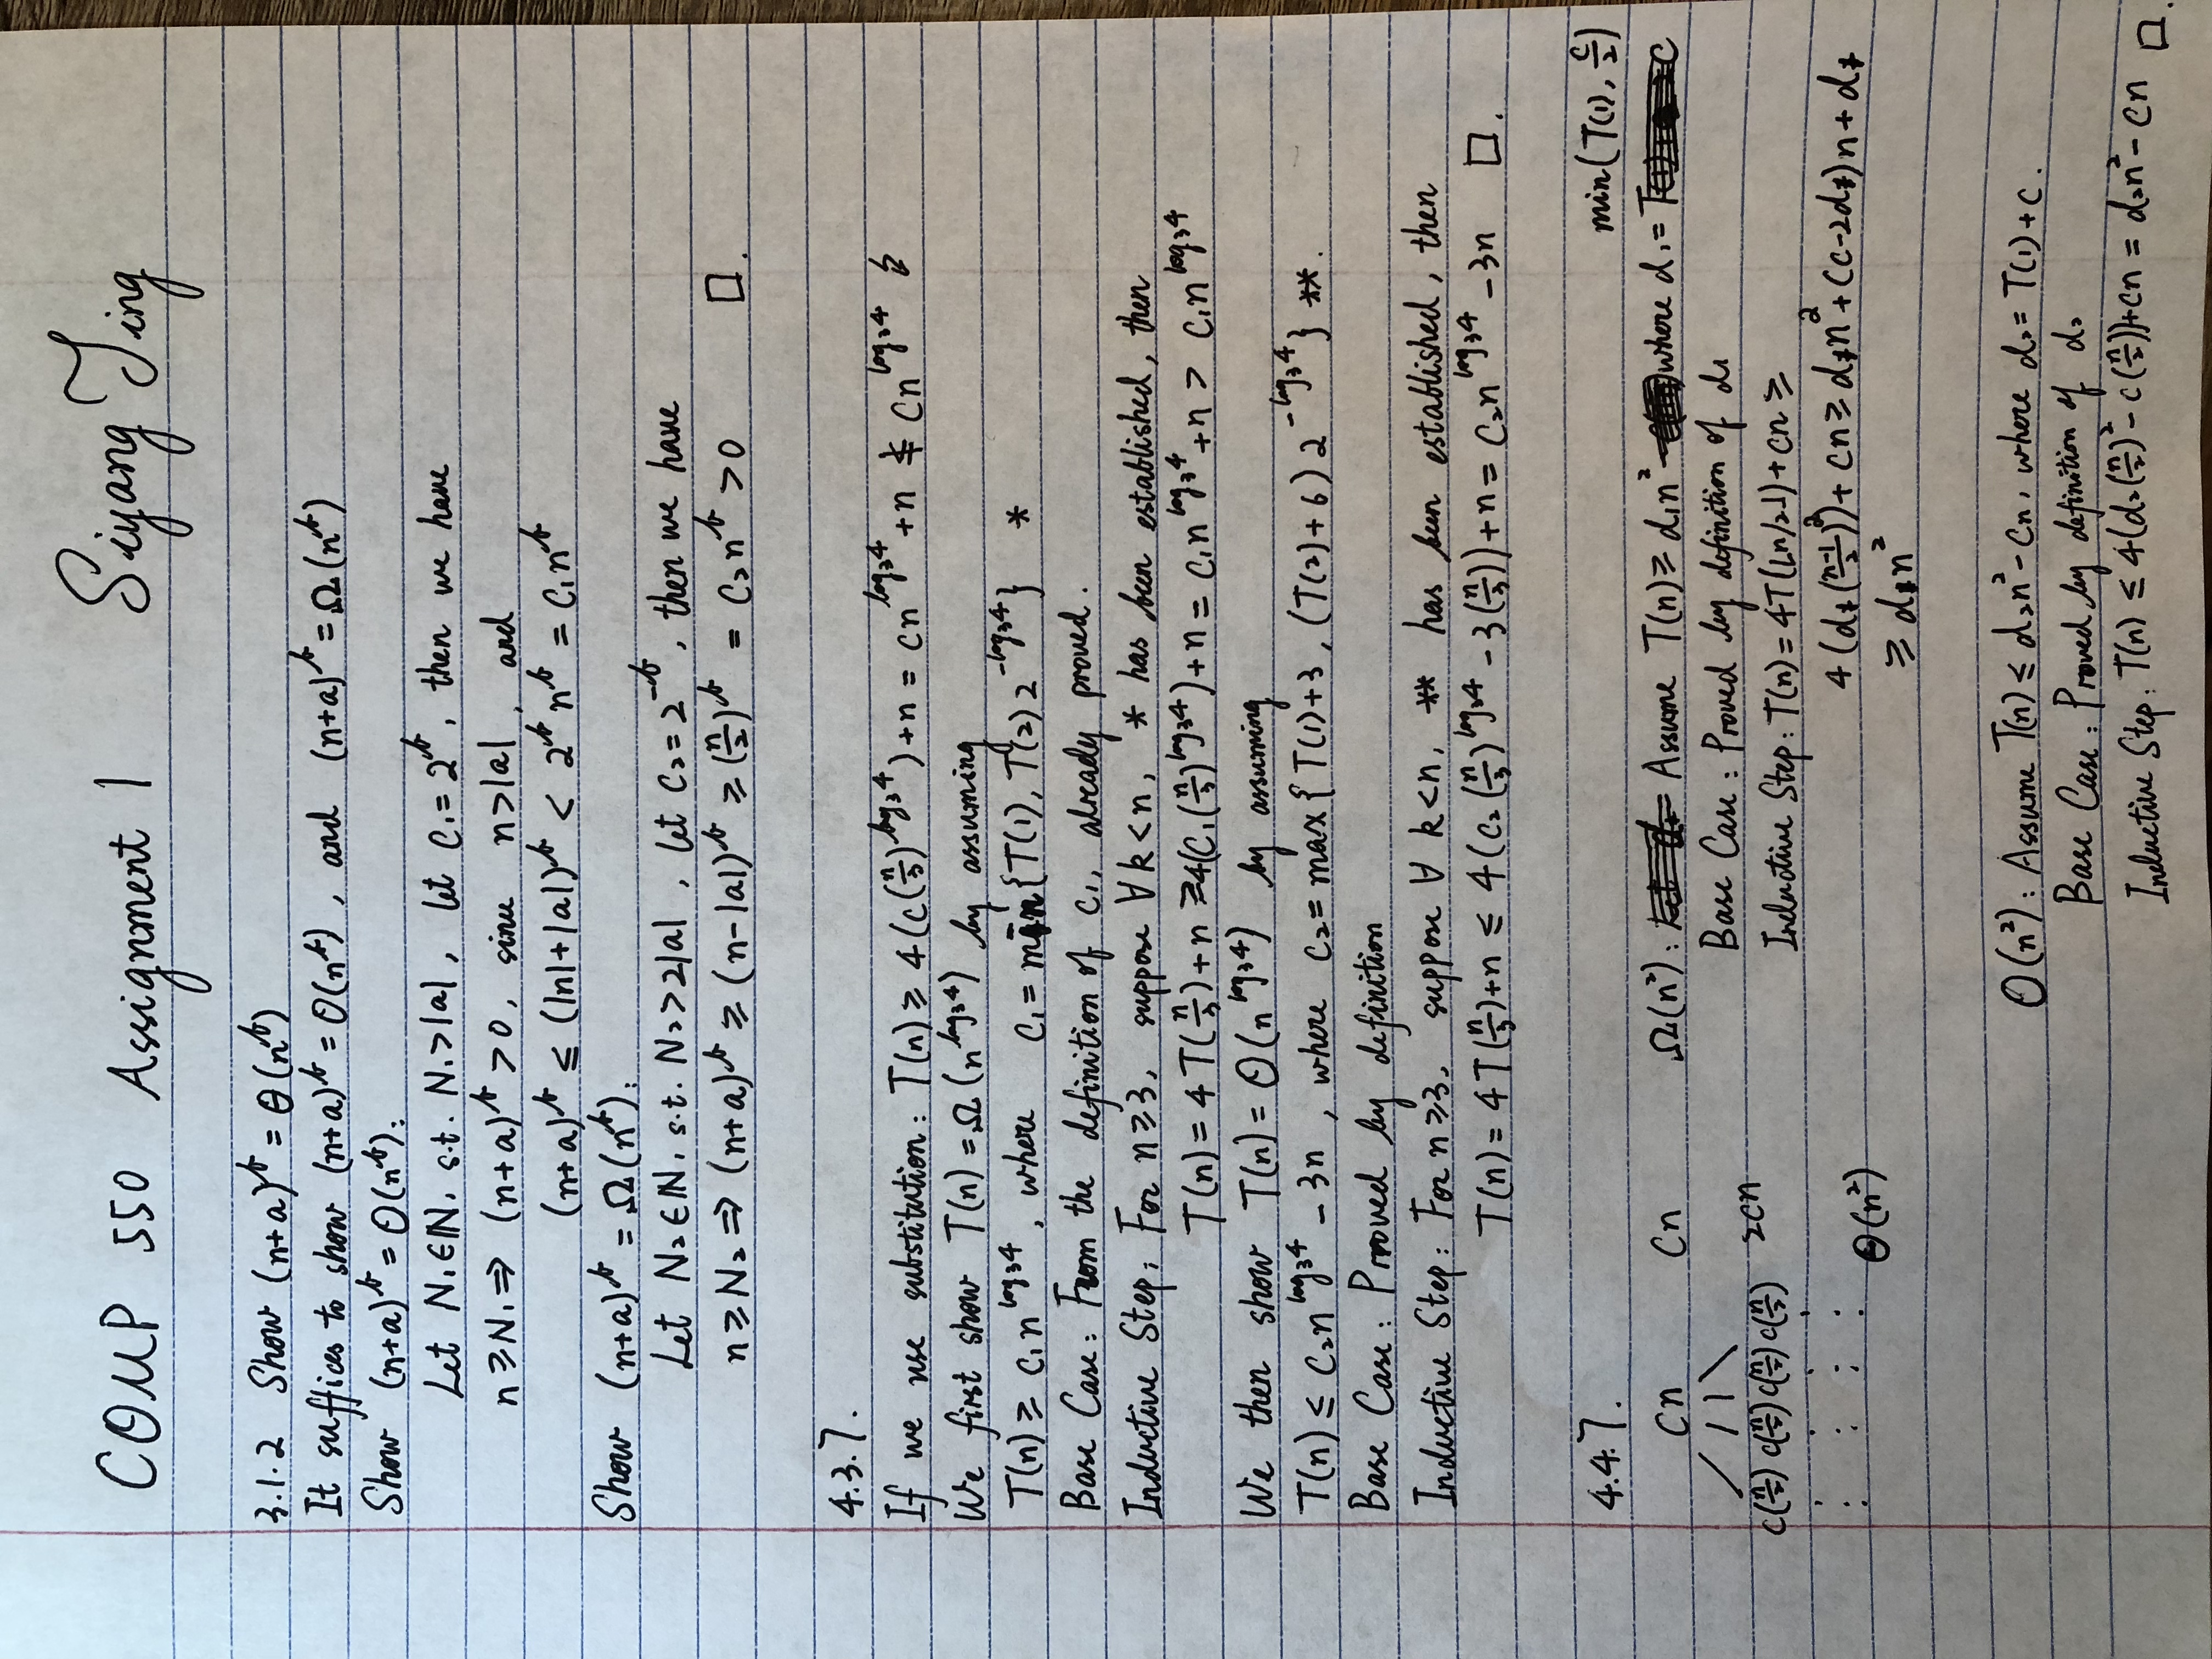 COMP 550 Assignment 1 Siyang Jing
3.1.2 Show (n+a)^b = Θ(n^b)
It suffices to show (n+a)^b = O(n^b), and (n+a)^b = Ω(n^b)
Show (n+a)^b = O(n^b):
Let N₁∈ℕ, s.t. N₁>|a|, let C₁=2^b, then we have
n≥N₁⇒ (n+a)^b >0, since n>|a|, and
(n+a)^b ≤ (|n|+|a|)^b < 2^b n^b = C₁n^b
Show (n+a)^b = Ω(n^b):
Let N₂∈ℕ, s.t. N₂>2|a|, let C₂=2^-b, then we have
n≥N₂⇒ (n+a)^b ≥ (n-|a|)^b ≥ (n/2)^b = C₂n^b >0 □.
4.3.7.
If we use substitution: T(n) ≥ 4(c(n/3)^log₃4)+n = cn^log₃4 +n ≰ cn^log₃4 ↯
We first show T(n)=Ω(n^log₃4) by assuming
T(n) ≥ c₁n^log₃4, where c₁=min{T(1), T(2)2^-log₃4} *
Base Case: From the definition of c₁, already proved.
Inductive Step: For n≥3, suppose ∀k<n, * has been established, then
T(n) = 4T(n/3)+n ≥4(c₁(n/3)^log₃4)+n = c₁n^log₃4+n > c₁n^log₃4
We then show T(n) = O(n^log₃4) by assuming
T(n) ≤ c₂n^log₃4 - 3n, where c₂=max{T(1)+3, (T(2)+6)2^-log₃4} **.
Base Case: Proved by definition
Inductive Step: For n≥3, suppose ∀ k<n, ** has been established, then
T(n) = 4T(n/3)+n ≤ 4(c₂(n/3)^log₃4 - 3(n/3))+n = c₂n^log₃4 - 3n □.
4.4.7.
Cn Cn
c(n/2) c(n/2) c(n/2) c(n/2) 2cn
Θ(n²)
min(T(1), c/2)
Ω(n²): Assume T(n) ≥ d₁n² where d₁=
Base Case: Proved by definition of d₁
Inductive Step: T(n) = 4T(⌊n/2⌋)+cn ≥
4(d₁((n-1)/2)²)+cn ≥ d₁n²+(c-2d₁)n+d₁
≥ d₁n²
O(n²): Assume T(n) ≤ d₂n²-cn, where d₂= T(1)+c.
Base Case: Proved by definition of d₂
Inductive Step: T(n) ≤ 4(d₂(n/2)²-c(n/2))+cn = d₂n²-cn □.